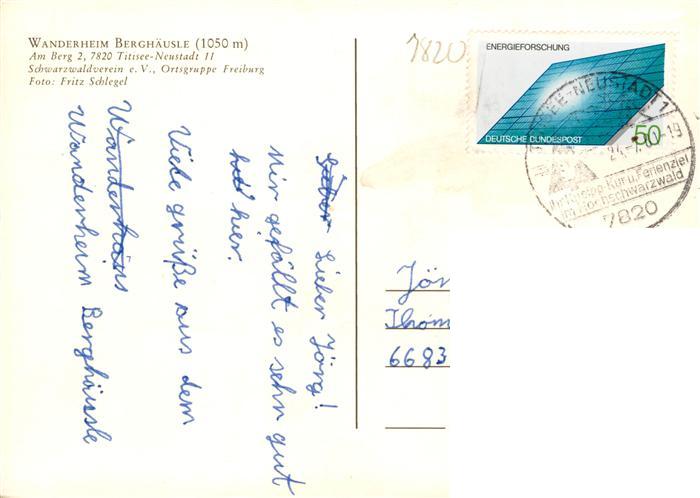 WANDERHEIM BERGHÄUSLE (1050 m)
Am Berg 2, 7820 Titisee-Neustadt 11
Schwarzwaldverein e. V., Ortsgruppe Freiburg
Foto: Fritz Schlegel
7820
ENERGIEFORSCHUNG
DEUTSCHE BUNDESPOST
50
SEE-NEUSTADT 1
-19
Kneipp-Kur u. Ferienziel
im Hochschwarzwald
7820
Lieber Jörg!
Mir gefällt es sehr gut
hier.
Viele grüße aus dem
Wanderhäus
Wanderheim Berghäusle
Jör
Thom
6683